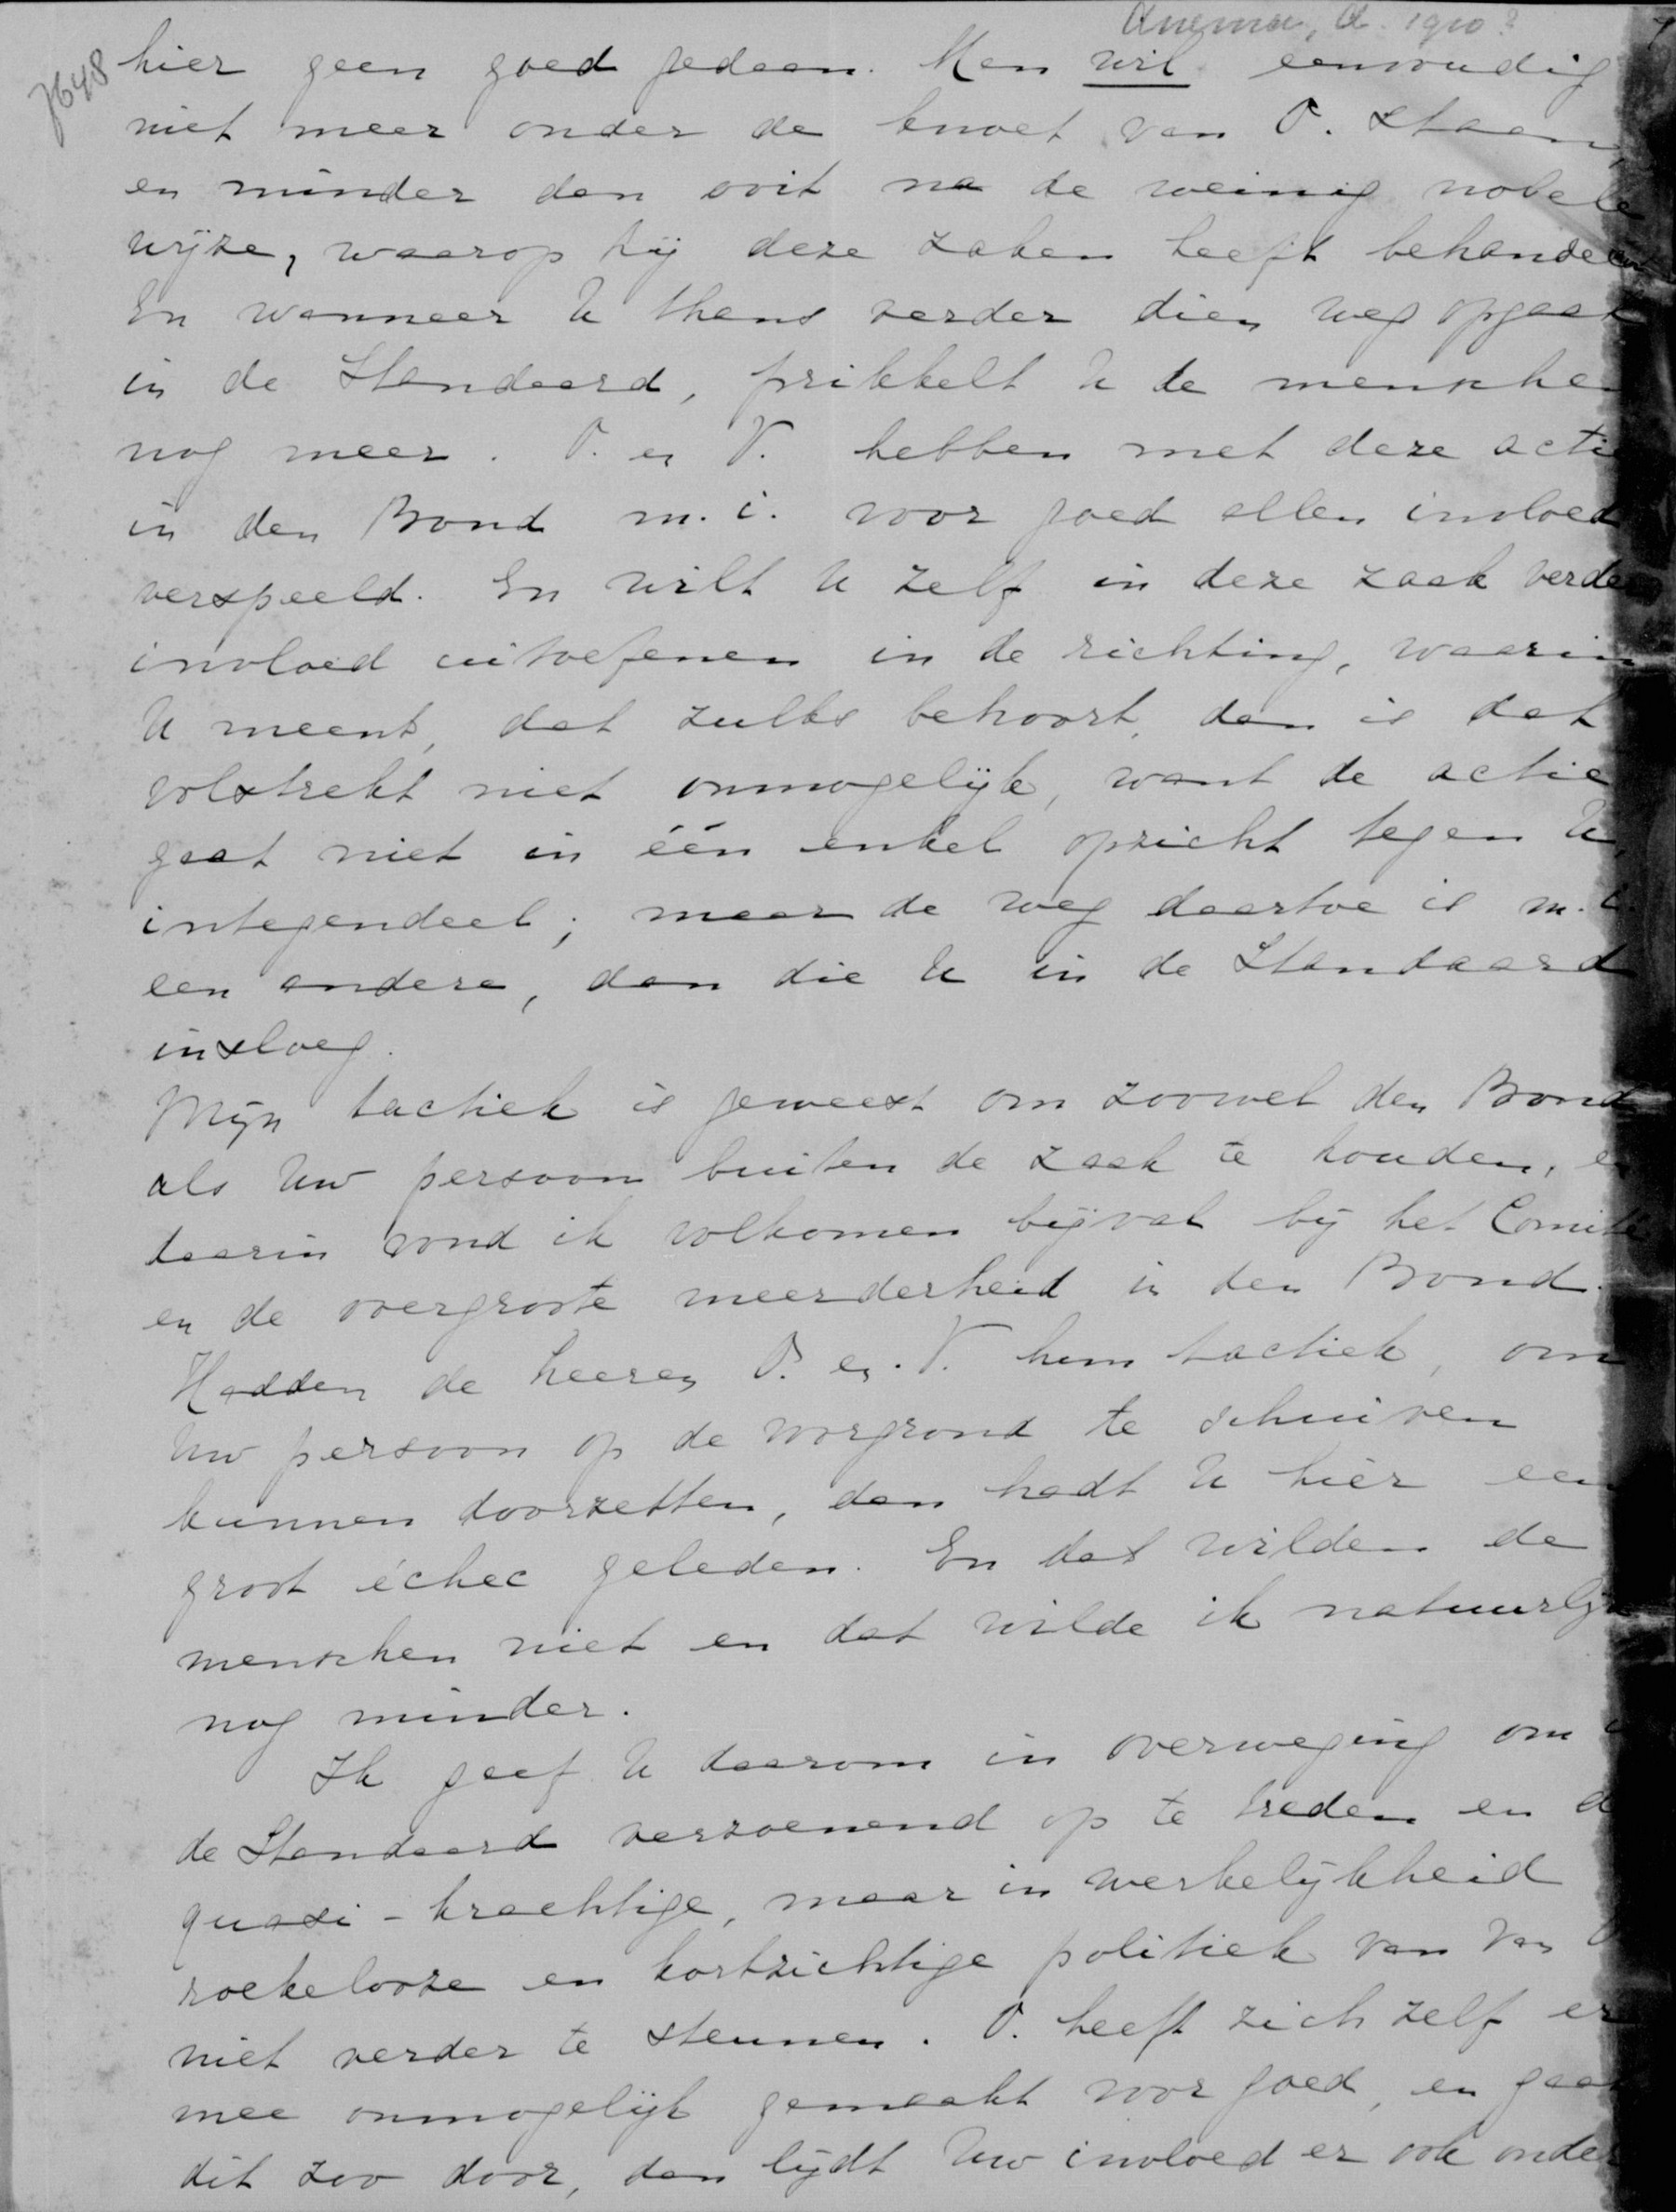 Anema, A. 1910?
7648
hier geen goed gedaan. Men wil eenvoudig
niet meer onder de knoet van O. staan,
en minder dan ooit na de weinig nobele
wijze, waarop hij deze zaken heeft behandeld
En wanneer U thans verder dien weg opgaat
in de Standaard, prikkelt U de menschen
nog meer. O. en V. hebben met deze actie
in den Bond m.i. voor goed allen invloed
verspeeld. En wilt U zelf in deze zaak verder
invloed uitoefenen in de richting, waarin
U meent, dat zulks behoort, dan is dat
volstrekt niet onmogelijk, want de actie
gaat niet in één enkel opzicht tegen U,
integendeel; maar de weg daartoe is m.i.
een andere, dan die U in de Standaard
insloeg.
Mijn tactiek is geweest om zoowel den Bond
als Uw persoon buiten de zaak te houden, en
daarin vond ik volkomen bijval bij het Comité
en de overgroote meerderheid in den Bond.
Hadden de heeren O. en V. hun tactiek, om
Uw persoon op de voorgrond te schuiven
kunnen doorzetten, dan hadt U hier een
groot échec geleden. En dat wilden de
menschen niet en dat wilde ik natuurlijk
nog minder.
Ik geef U daarom in overweging om in
de Standaard verzoenend op te treden en de
quasi-krachtige, maar in werkelijkheid
roekelooze en kortzichtige politiek van Van O
niet verder te steunen. O. heeft zich zelf er
mee onmogelijk gemaakt voor goed, en gaat
dit zoo door, dan lijdt Uw invloed er ook onder